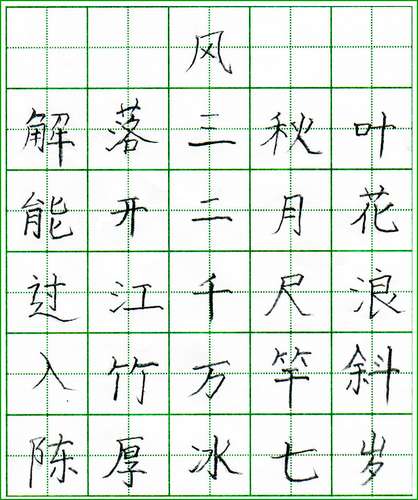 风
解落三秋叶
能开二月花
过江千尺浪
入竹万竿斜
陈厚冰七岁